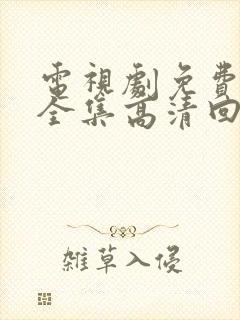 電視劇免費
全集高清回
雜草入侵